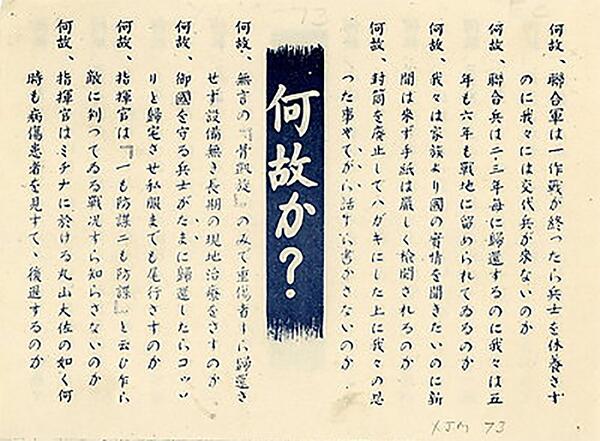 何故、聯合軍は一作戦が終ったら兵士を休養さす
のに我々には交代兵が來ないのか
何故、聯合兵は二・三年毎に歸還するのに我々は五
年も六年も戦地に留められてゐるのか
何故、我々は家族より國の實情を聞きたいのに新
聞は來ず手紙は厳しく検閲されるのか
何故、封筒を廃止してハガキにした上に我々の思
った事やてがら話すら書かさないのか
何故か?
何故、無言の『骨凱旋』のみで重傷者すら歸還さ
せず設備無き長期の現地治療をさすのか
何故、御國を守る兵士がたまに歸還したらコッソ
リと歸宅させ私服までも尾行さすのか
何故、指揮官は『一も防諜二も防諜』と云ひ乍ら
敵に判ってゐる戦況すら知らさないのか
何故、指揮官はミチナに於ける丸山大佐の如く何
時も病傷患者を見すてゝ後退するのか
XJM 73